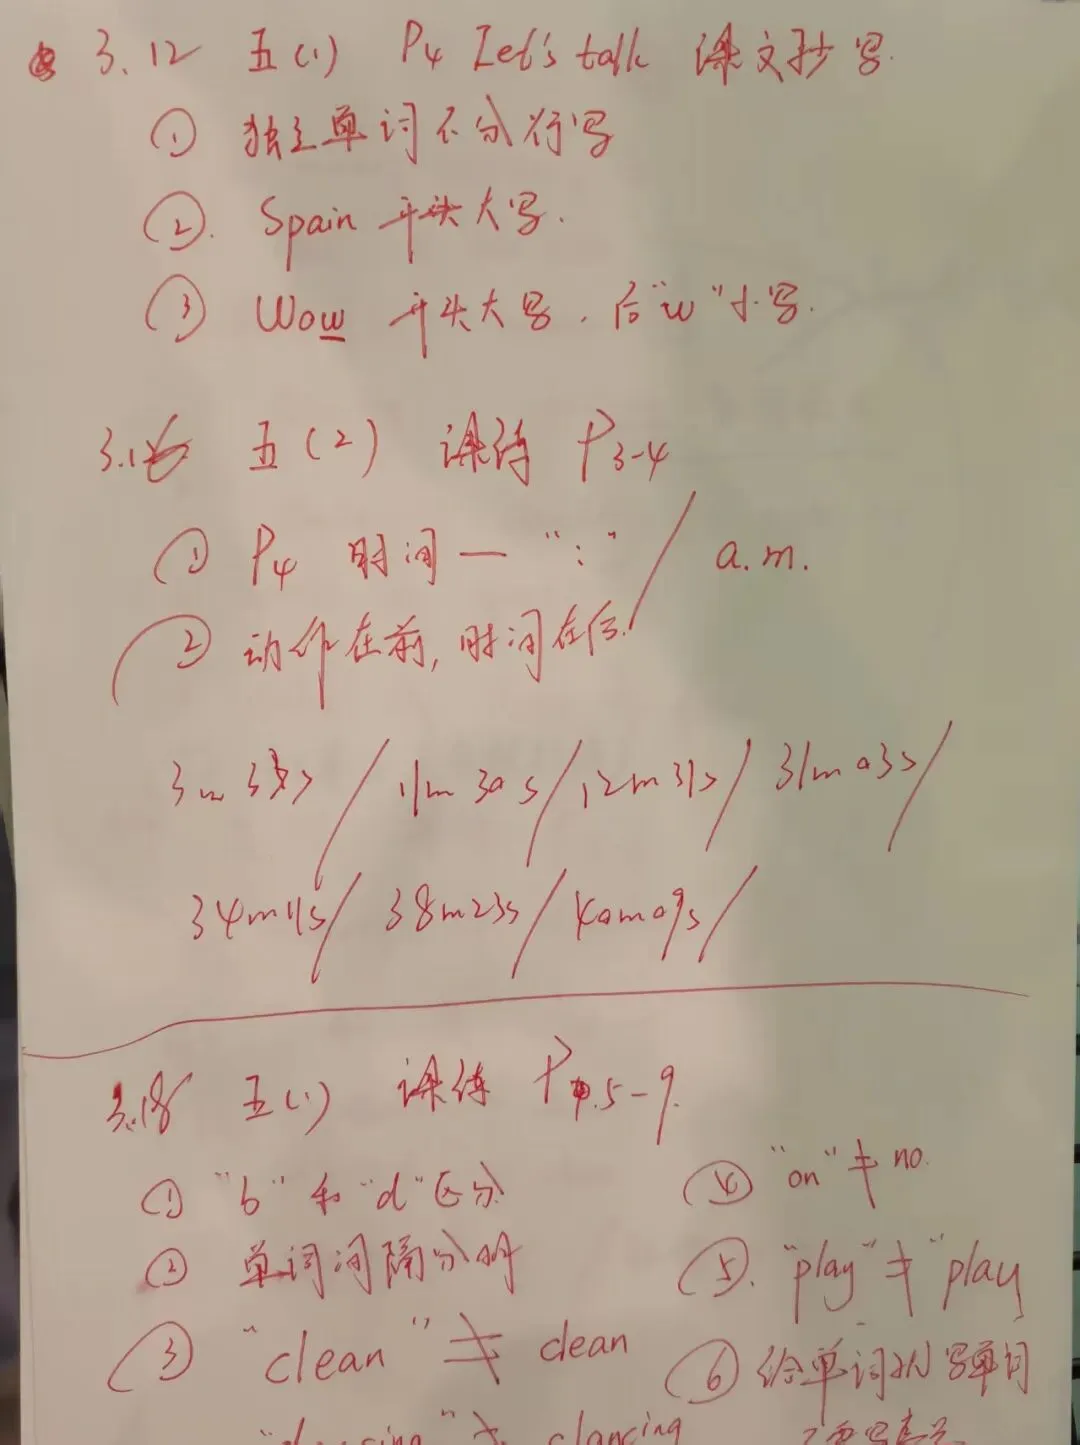 3.12 五(1) P4 Let's talk 课文抄写.
① 独立单词不分行写
②. Spain 开头大写.
③ Wow 开头大写. 后"w"小写.
3.16 五(2) 课练 P3-4
① P4 时间 — ":" / a.m.
② 动作在前, 时间在后.
3m 3s / 11m 30s / 12m31s / 31m03s /
34m11s / 38m23s / 40m09s /
3.18 五(1) 课练 P.5-9.
① "b" 和 "d" 区分
② 单词间隔分明
③ "clean" ≠ clean
④ "on" ≠ no.
⑤. "play" ≠ "play
⑥ 给单词 写单词
" ≠ clancing